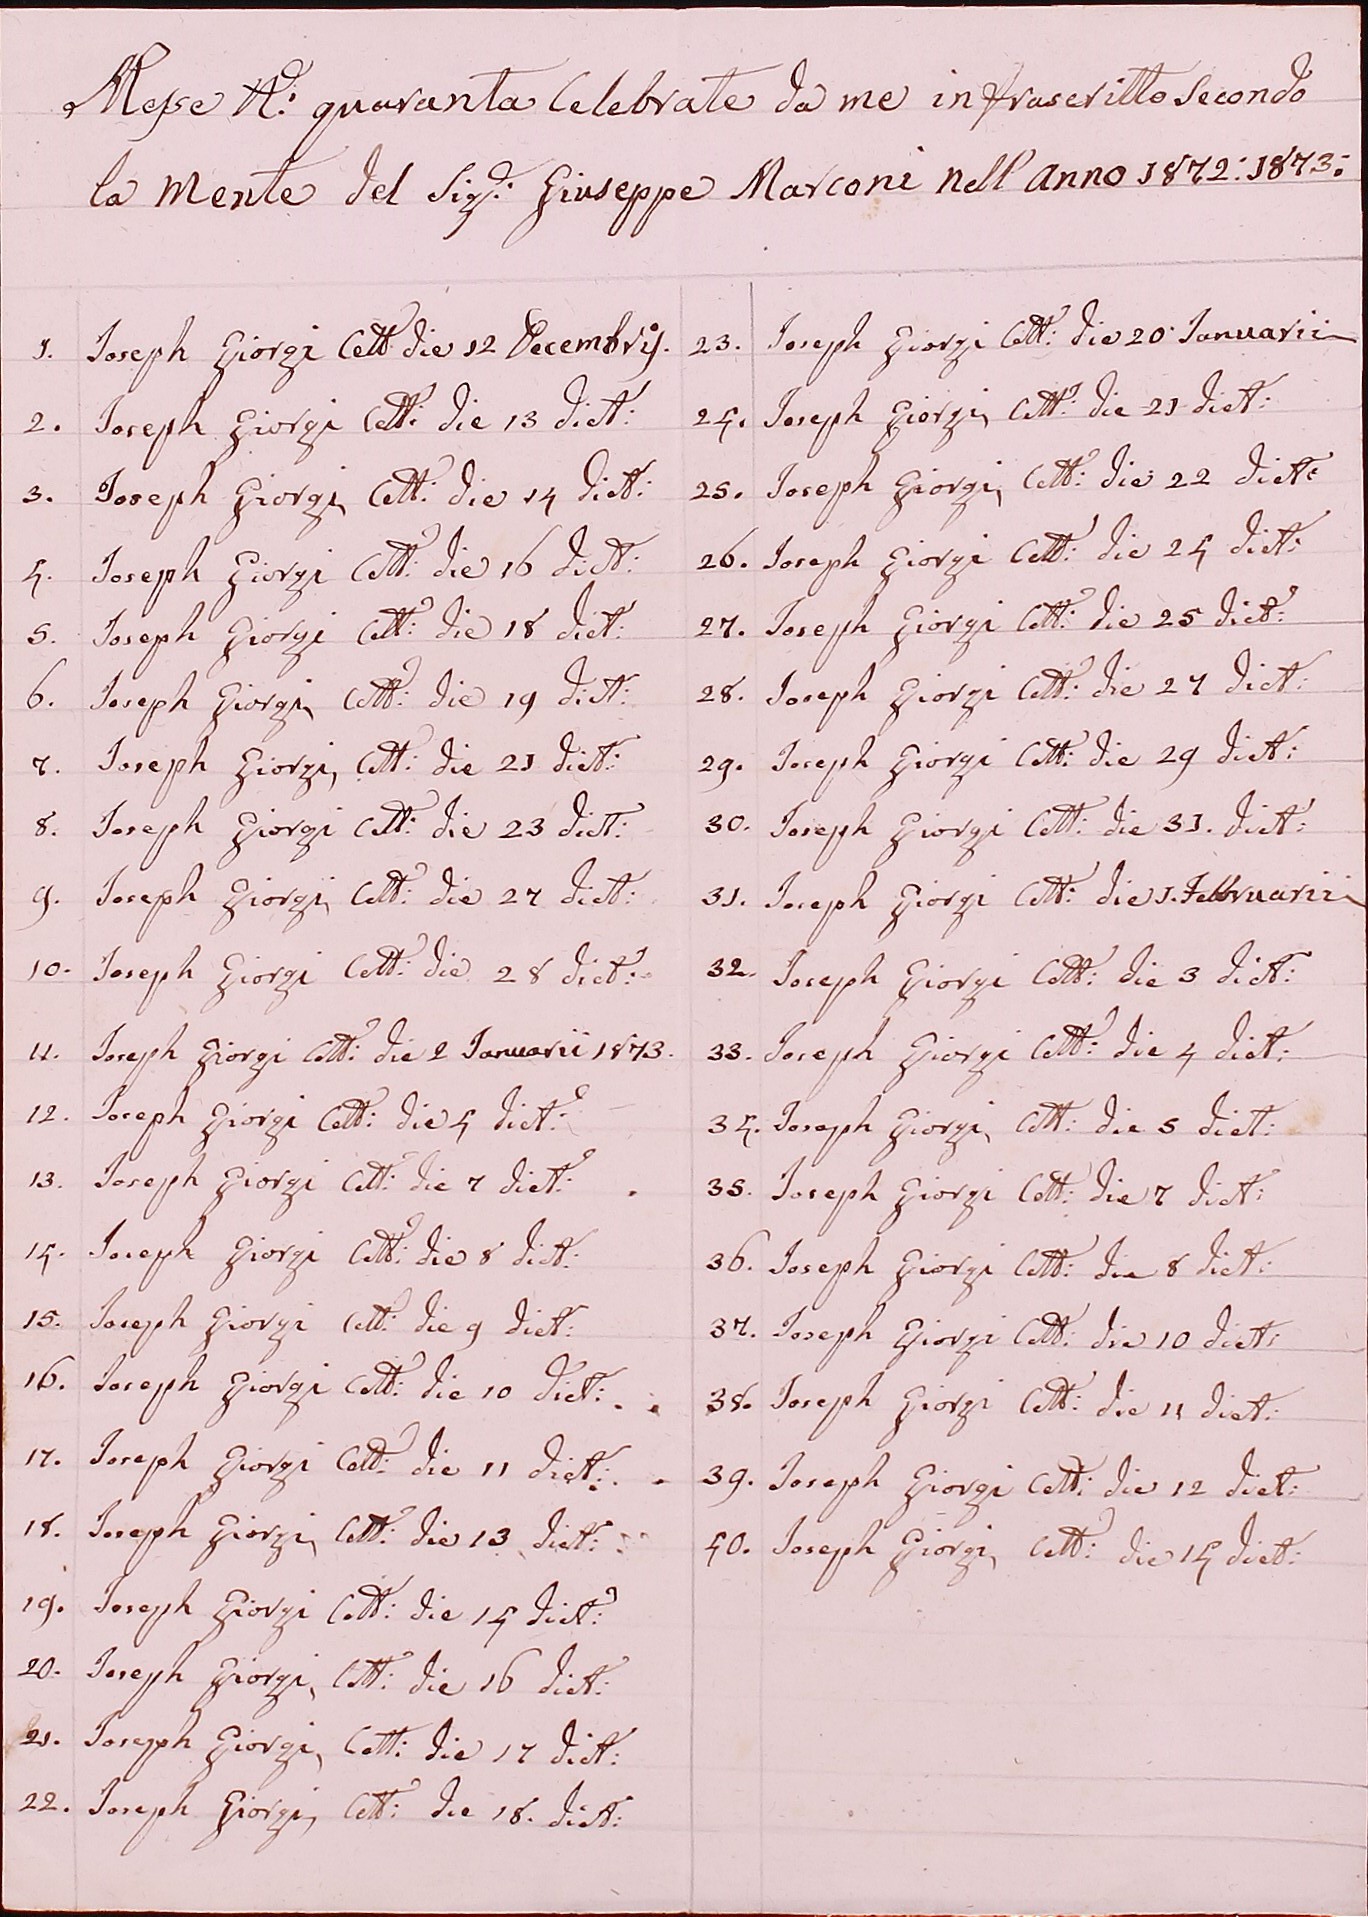 Messe N.º quaranta Celebrate da me infrascritto Secondo
la Mente del Sig.r Giuseppe Marconi nell'Anno 1872: 1873:
1. Joseph Giorgi Cett: die 12 Decembrij.
2. Joseph Giorgi Cett: die 13 dict:
3. Joseph Giorgi Cett: die 14 dict:
4. Joseph Giorgi Cett: die 16 dict:
5. Joseph Giorgi Cett: die 18 dict:
6. Joseph Giorgi Cett: die 19 dict:
7. Joseph Giorgi Cett: die 21 dict:
8. Joseph Giorgi Cett: die 23 dict:
9. Joseph Giorgi Cett: die 27 dict:
10. Joseph Giorgi Cett: die 28 dict:
11. Joseph Giorgi Cett: die 2 Januarii 1873.
12. Joseph Giorgi Cett: die 4 dict:
13. Joseph Giorgi Cett: die 7 dict:
14. Joseph Giorgi Cett: die 8 dict:
15. Joseph Giorgi Cett: die 9 dict:
16. Joseph Giorgi Cett: die 10 dict:
17. Joseph Giorgi Cett: die 11 dict:
18. Joseph Giorgi Cett: die 13 dict:
19. Joseph Giorgi Cett: die 14 dict:
20. Joseph Giorgi Cett: die 16 dict:
21. Joseph Giorgi Cett: die 17 dict:
22. Joseph Giorgi Cett: die 18. dict:
23. Joseph Giorgi Cett: die 20 Januarii
24. Joseph Giorgi Cett: die 21 dict:
25. Joseph Giorgi Cett: die 22 dict:
26. Joseph Giorgi Cett: die 24 dict:
27. Joseph Giorgi Cett: die 25 dict:
28. Joseph Giorgi Cett: die 27 dict:
29. Joseph Giorgi Cett: die 29 dict:
30. Joseph Giorgi Cett: die 31. dict:
31. Joseph Giorgi Cett: die 1. Febbruarii
32. Joseph Giorgi Cett: die 3 dict:
33. Joseph Giorgi Cett: die 4 dict:
34. Joseph Giorgi Cett: die 5 dict:
35. Joseph Giorgi Cett: die 7 dict:
36. Joseph Giorgi Cett: die 8 dict:
37. Joseph Giorgi Cett: die 10 dict:
38. Joseph Giorgi Cett: die 11 dict:
39. Joseph Giorgi Cett: die 12 dict:
40. Joseph Giorgi Cett: die 14 dict: